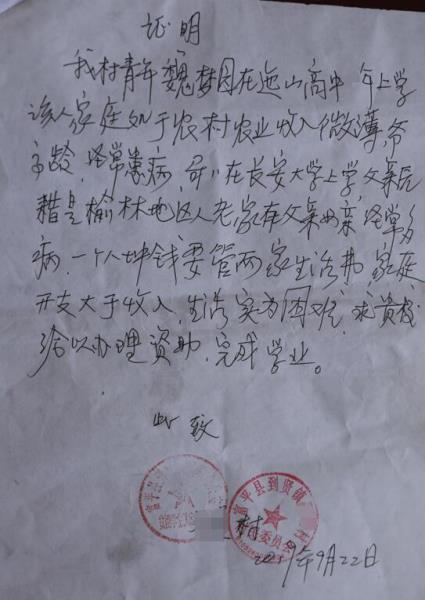 证明
我村青年魏梦园在迤山高中 年上学
该人家庭处于农村农业收入微薄,爷
高龄,经常患病,哥哥在长安大学上学,父亲后
籍是榆林地区人老家有父亲母亲,经常多
病,一个人坤钱要管两家生活费,家庭
开支大于收入,生活实为困难,求贵校
给以办理资助,完成学业。
此致
富平县到贤镇
村
委员会
年9月22日